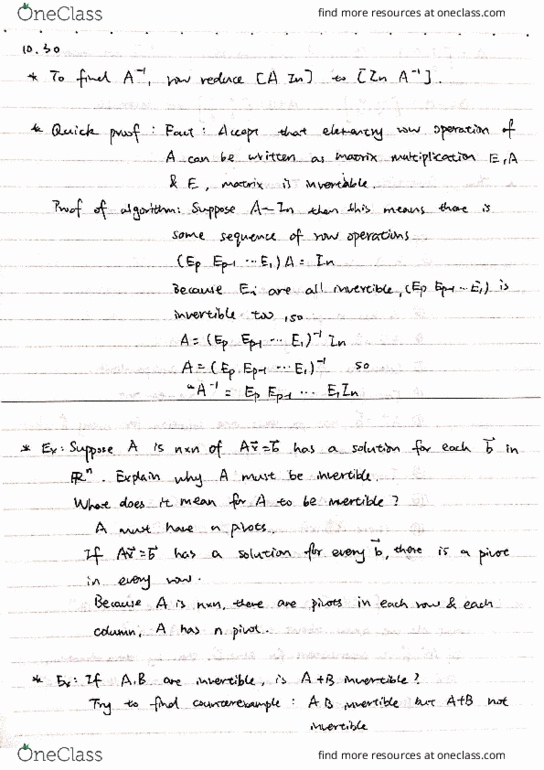 OneClass find more resources at oneclass.com
10.30
* To find A⁻¹, row reduce [A In] to [In A⁻¹].
* Quick proof : Fact : Accept that elemantry row operation of
A can be written as matrix multiplication E₁A
& E, matrix is invertable.
Proof of algorithm: Suppose A~In then this means there is
some sequence of row operations
(Ep Ep-1 ... E₁) A = In
Because Ei are all invercible, (Ep Ep-1 ... E₁) is
invertible too, so
A = (Ep Ep-1 ... E₁)⁻¹ In
A = (Ep Ep-1 ... E₁)⁻¹ so
A⁻¹ = Ep Ep-1 ... E₁In
* Ex: Suppose A is nxn of Av⃗=b⃗ has a solution for each b⃗ in
ℝⁿ. Explain why A must be invertible.
What does it mean for A to be invertible?
A must have n pivots.
If Av⃗=b⃗ has a solution for every b⃗, there is a pivot
in every row.
Because A is nxn, there are pivots in each row & each
column, A has n pivot.
* Ex: If A,B are invertible, is A+B invertible?
Try to find counterexample : A B invertible but A+B not
invertible
OneClass find more resources at oneclass.com